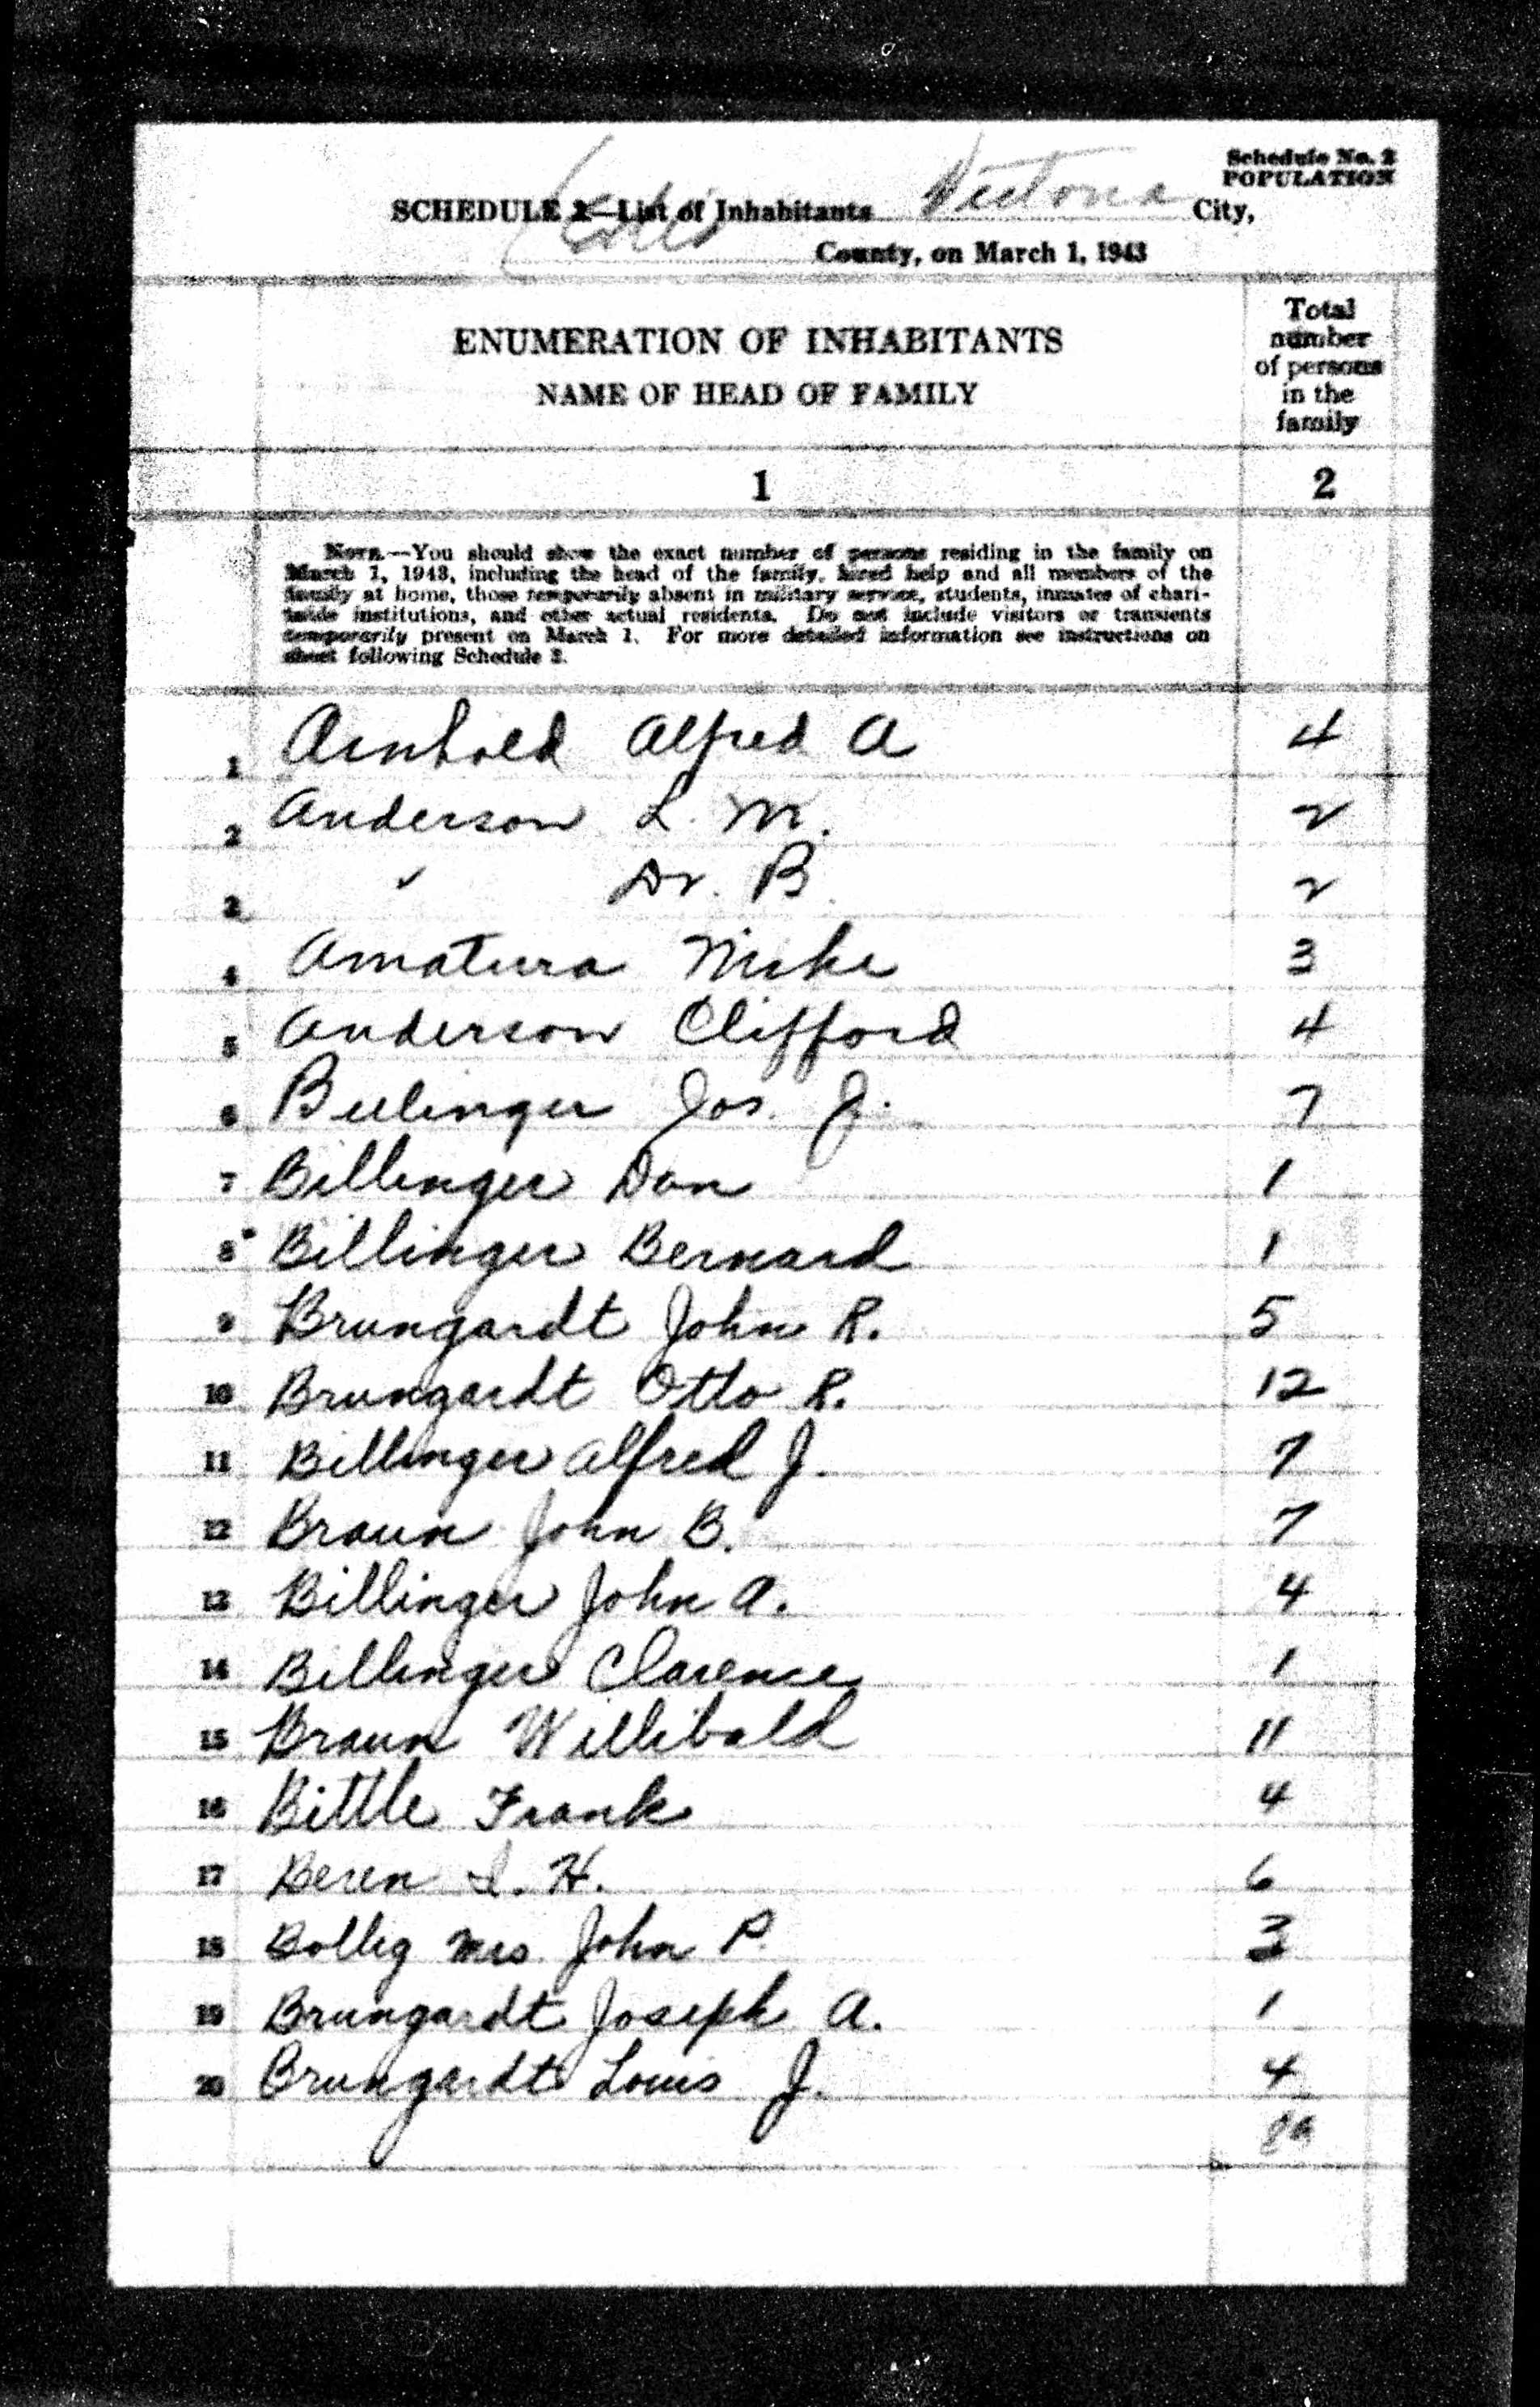 Schedule No. 2
POPULATION
SCHEDULE 2—List of Inhabitants Victoria City,
Ellis County, on March 1, 1943
ENUMERATION OF INHABITANTS
NAME OF HEAD OF FAMILY
Total
number
of persons
in the
family
1 2
NOTE.—You should show the exact number of persons residing in the family on
March 1, 1943, including the head of the family, hired help and all members of the
family at home, those temporarily absent in military service, students, inmates of chari-
table institutions, and other actual residents. Do not include visitors or transients
temporarily present on March 1. For more detailed information see instructions on
sheet following Schedule 2.
1 Arnhold Alfred A 4
2 Anderson L. M. 2
3 " Dr. B. 2
4 Amatura Mike 3
5 Anderson Clifford 4
6 Beilinger Jos. J. 7
7 Billinger Dan 1
8 Billinger Bernard 1
9 Brungardt John R. 5
10 Brungardt Otto R. 12
11 Billinger Alfred J. 7
12 Braun John B. 7
13 Billinger John A. 4
14 Billinger Clarence 1
15 Braun Willibald 11
16 Bittle Frank 4
17 Beren I. H. 6
18 Bollig Mrs. John P. 3
19 Brungardt Joseph A. 1
20 Brungardt Louis J. 4
89